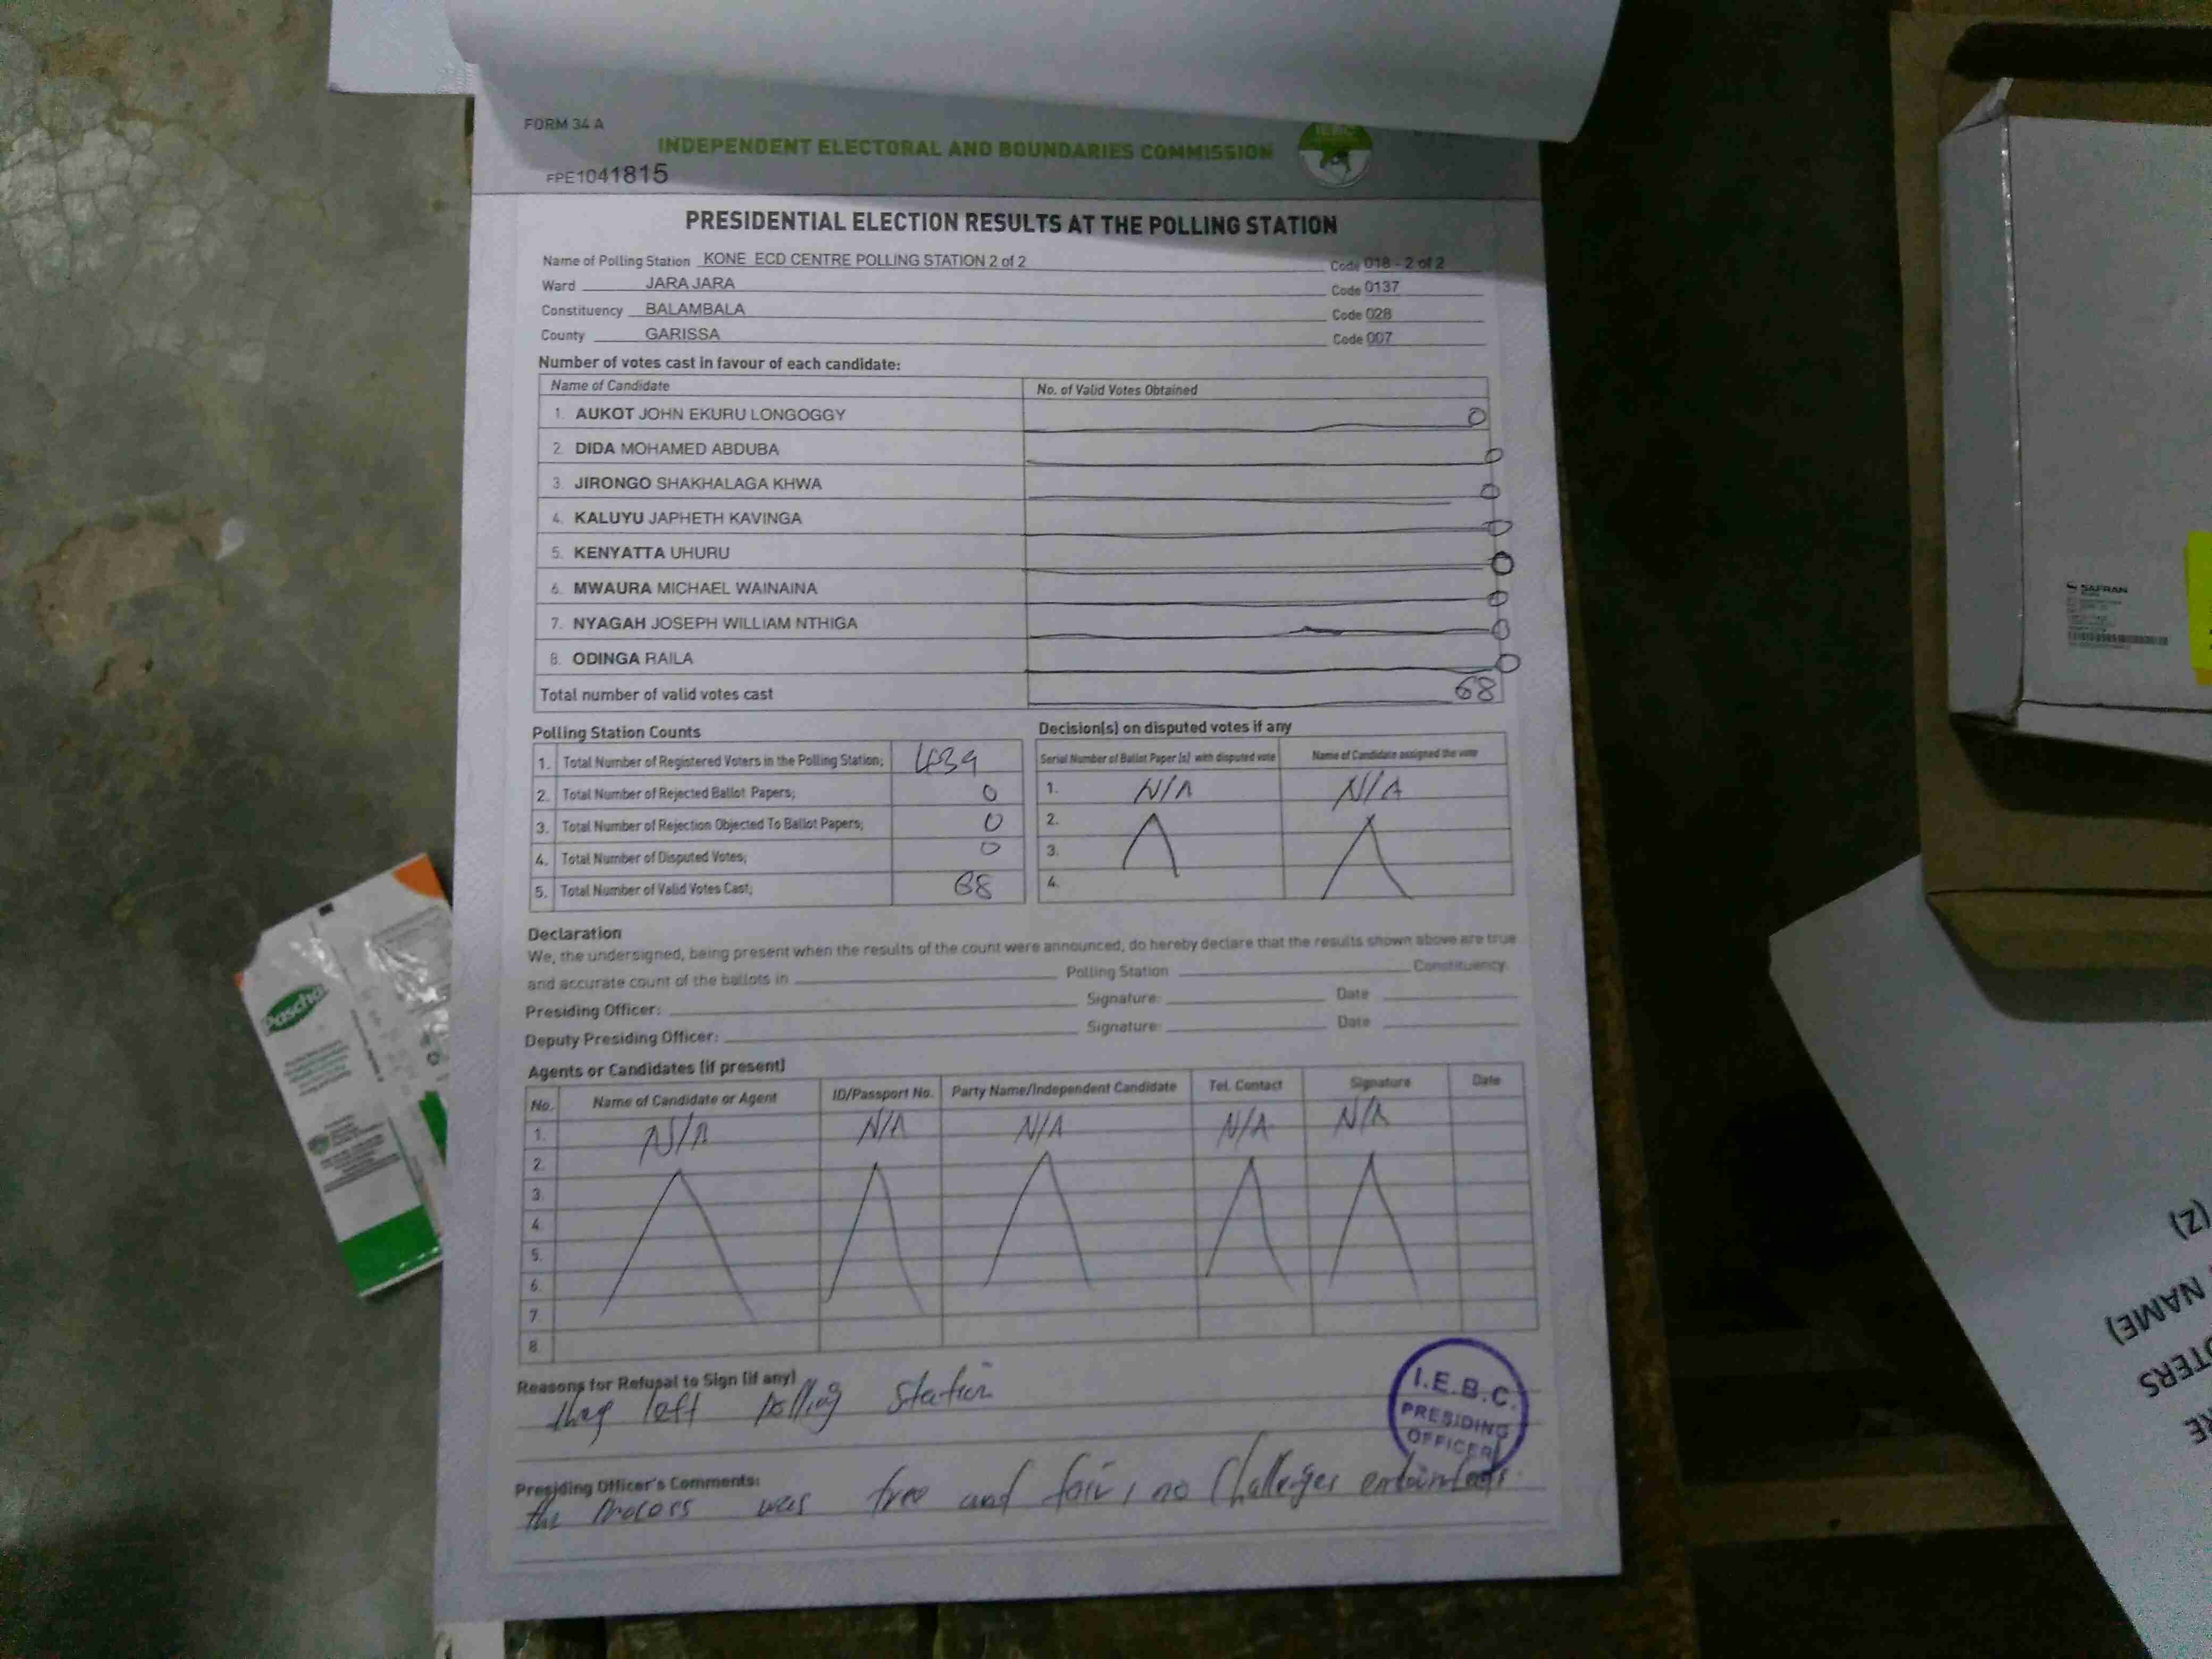 FORM 34 A
INDEPENDENT ELECTORAL AND BOUNDARIES COMMISSION
IEBC
FPE1041815
PRESIDENTIAL ELECTION RESULTS AT THE POLLING STATION
Name of Polling Station KONE ECD CENTRE POLLING STATION 2 of 2 Code 018 - 2 of 2
Ward JARA JARA Code 0137
Constituency BALAMBALA Code 028
County GARISSA Code 007
Number of votes cast in favour of each candidate:
Name of Candidate No. of Valid Votes Obtained
1. AUKOT JOHN EKURU LONGOGGY 0
2. DIDA MOHAMED ABDUBA 0
3. JIRONGO SHAKHALAGA KHWA 0
4. KALUYU JAPHETH KAVINGA 0
5. KENYATTA UHURU 0
6. MWAURA MICHAEL WAINAINA 0
7. NYAGAH JOSEPH WILLIAM NTHIGA 0
8. ODINGA RAILA 0
Total number of valid votes cast 68
Polling Station Counts
1. Total Number of Registered Voters in the Polling Station; 439
2. Total Number of Rejected Ballot Papers; 0
3. Total Number of Rejection Objected To Ballot Papers; 0
4. Total Number of Disputed Votes; 0
5. Total Number of Valid Votes Cast; 68
Decision(s) on disputed votes if any
Serial Number of Ballot Paper (s) with disputed vote Name of Candidate assigned the vote
1. N/A N/A
2.
3.
4.
Declaration
We, the undersigned, being present when the results of the count were announced, do hereby declare that the results shown above are true
and accurate count of the ballots in Polling Station Constituency.
Presiding Officer: Signature: Date
Deputy Presiding Officer: Signature: Date
Agents or Candidates (if present)
No. Name of Candidate or Agent ID/Passport No. Party Name/Independent Candidate Tel. Contact Signature Date
1. N/A N/A N/A N/A N/A
2.
3.
4.
5.
6.
7.
8.
Reasons for Refusal to Sign (if any)
they left polling station
I.E.B.C.
PRESIDING
OFFICER
Presiding Officer's Comments:
the process was free and fair, no challenges
Pascha
SAFRAN
(Z)
NAME)